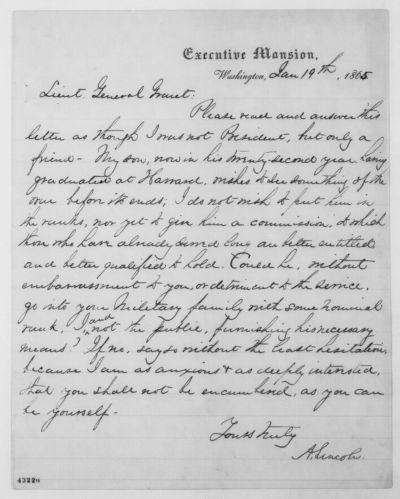 Executive Mansion,
Washington, Jan 19th, 1865
Lieut. General Grant:
Please read and answer this
letter as though I was not President, but only a
friend - My son, now in his twenty second year, having
graduated at Harvard, wishes to see something of the
war before it ends; I do not wish to put him in
the ranks, nor yet to give him a commission, to which
those who have already served long, are better entitled
and better qualified to hold. Could he, without
embarrassment to you, or detriment to the service,
go into your Military family with some nominal
rank, I, and not the public, furnishing his necessary
means? If no, say so without the least hesitation,
because I am as anxious & as deeply interested,
that you shall not be encumbered, as you can
be yourself -
Yours truly
A. Lincoln.
43220